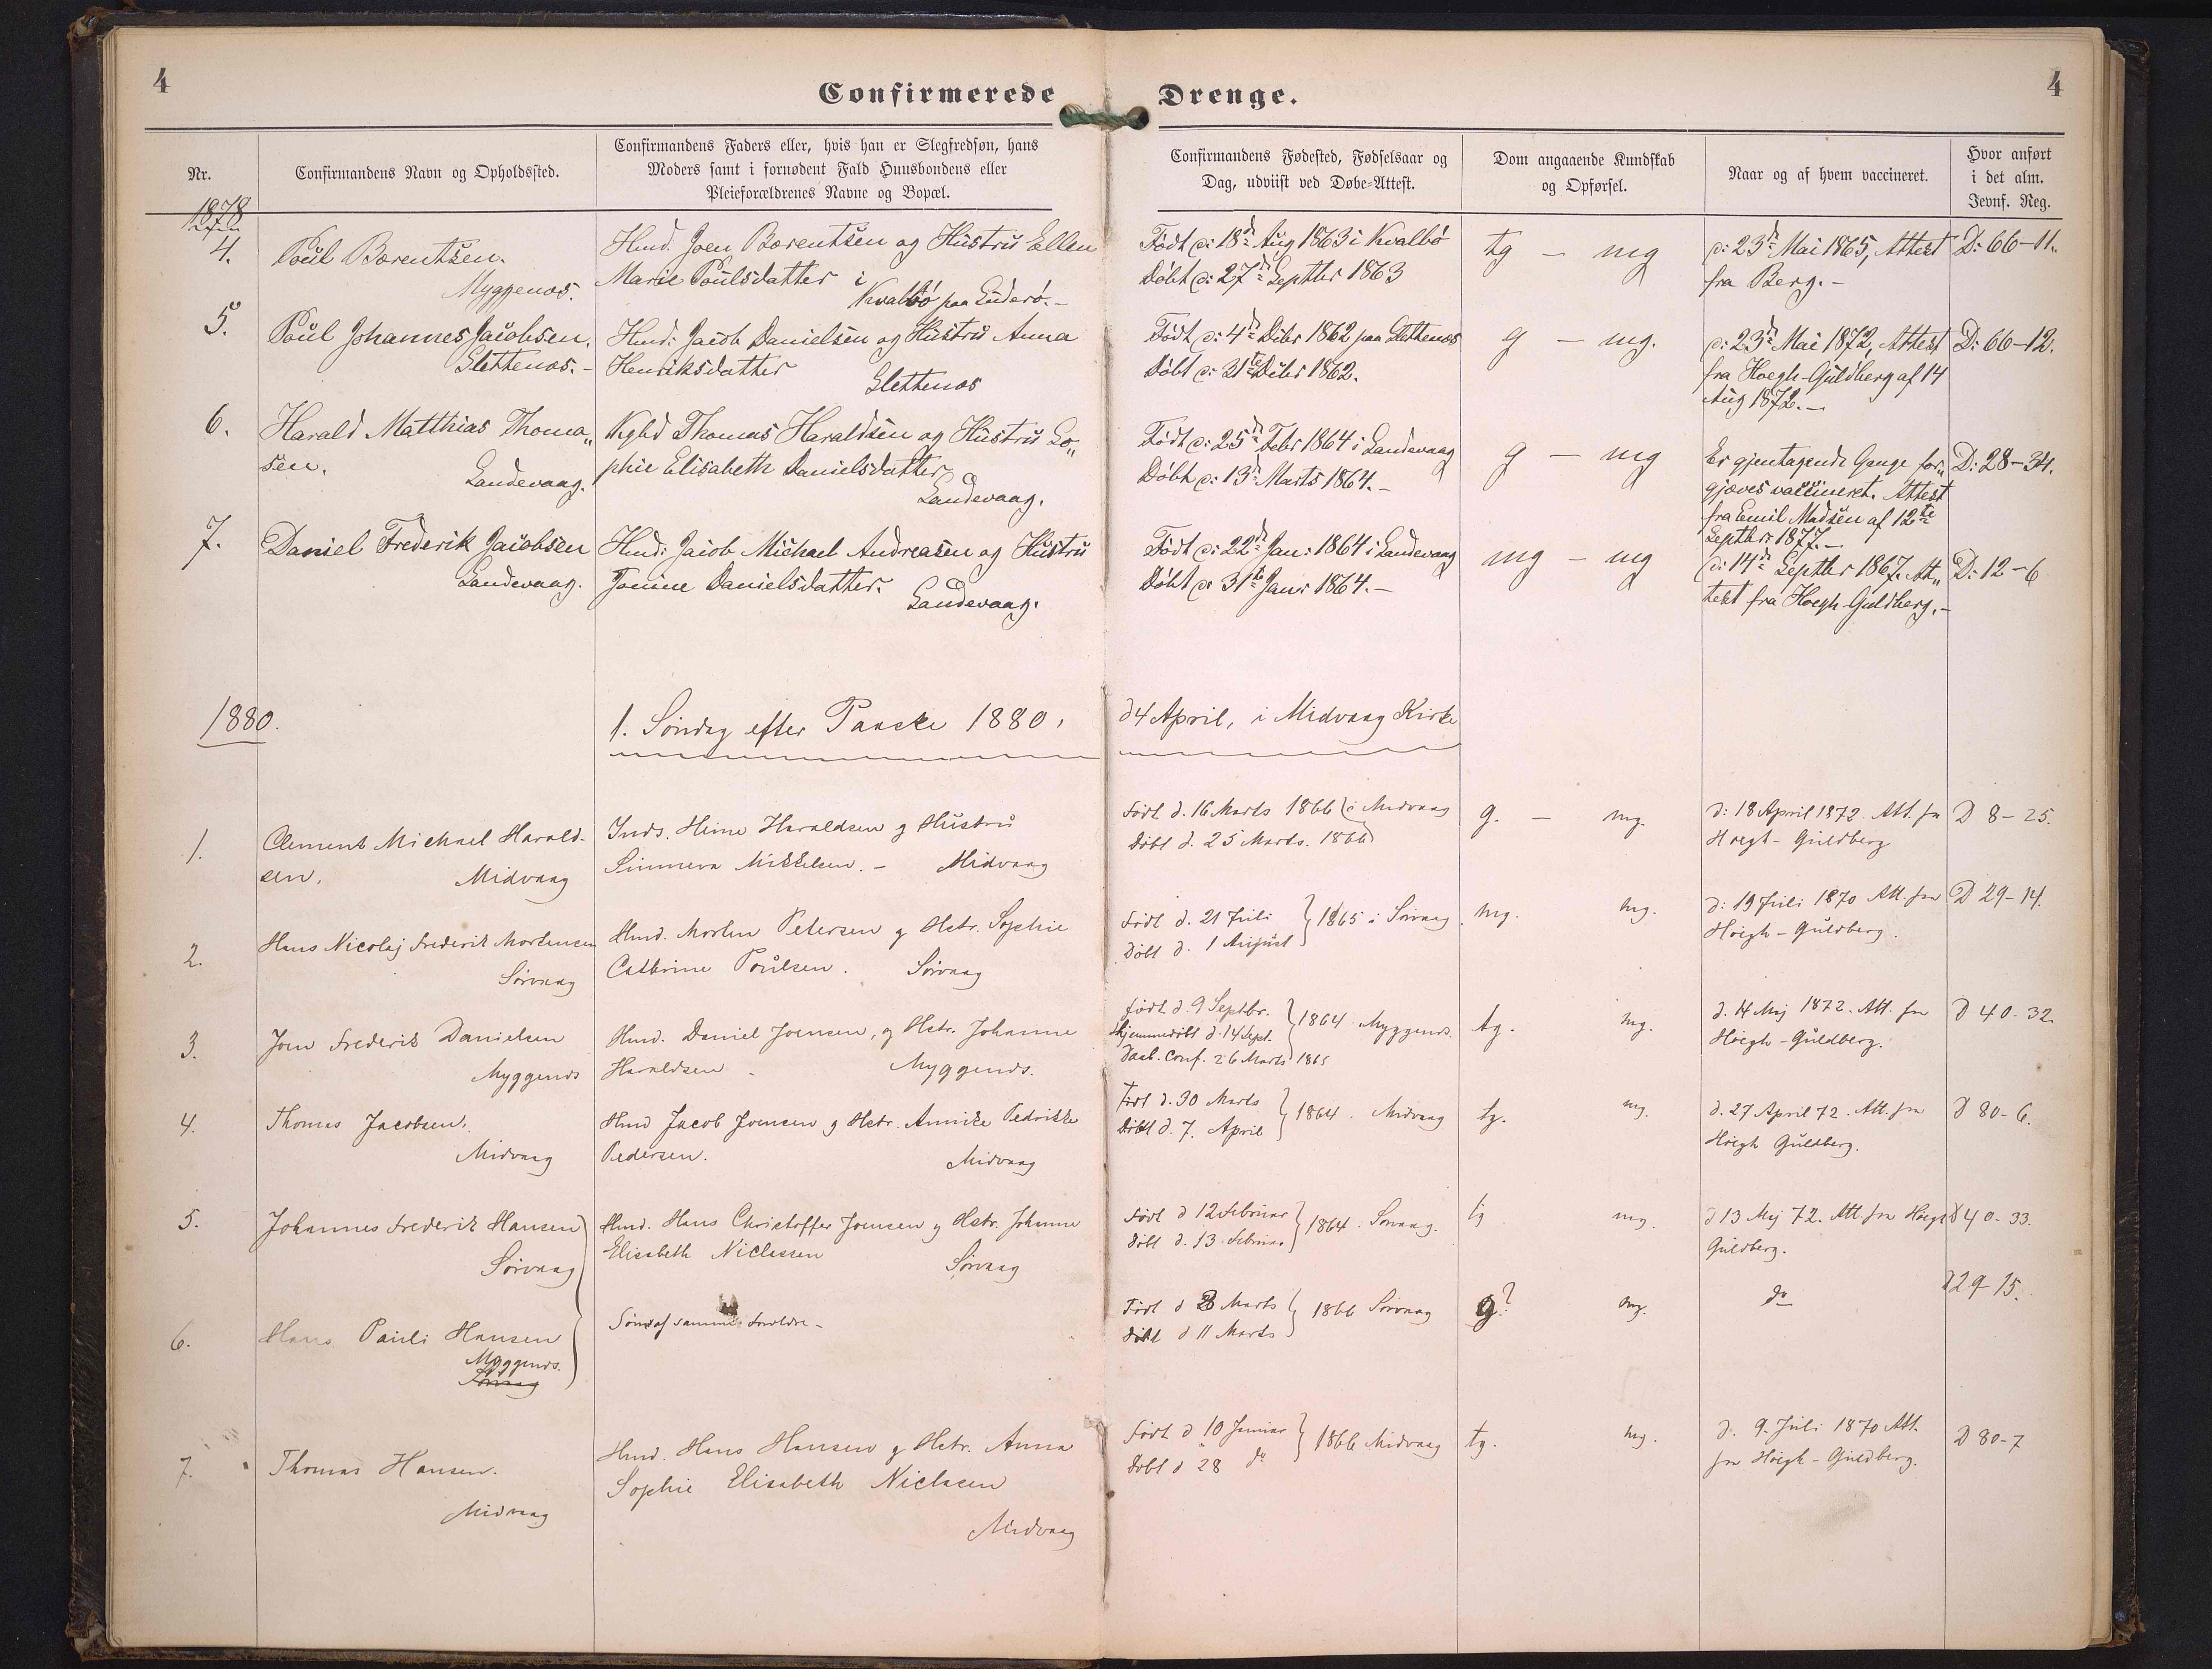 4
Confirmerede Drenge.
4
Nr.
Confirmandens Navn og Opholdssted.
Confirmandens Faders eller, hvis han er Slegfredsøn, hans
Moders samt i fornødent Fald Huusbondens eller
Pleieforældrenes Navne og Bopæl.
Confirmandens Fødested, Fødselsaar og
Dag, udviist ved Døbe-Attest.
Dom angaaende Kundskab
og Opførsel.
Naar og af hvem vaccineret.
Hvor anført
i det alm.
Jevnf. Reg.
1878
4.
Poul Bærentsen.
Myggenæs.
Hmd. Joen Bærentsen og Hustru Ellen
Marie Poulsdatter i
Kvalbø paa Suderø.-
Født d: 18d Aug 1863 i Kvalbø
Døbt d: 27d Septbr 1863
tg - mg
d: 23d Mai 1865, Attest
fra Berg.-
D: 66-11.
5.
Poul Johannes Jacobsen.
Slettenæs.-
Hmd: Jacob Danielsen og Hustru Anna
Henriksdatter
Slettenæs
Født d: 4d Decbr 1862 paa Slettenæs
Døbt d: 21de Decbr 1862.
g - mg.
d: 23d Mai 1872, Attest
fra Hoegh-Guldberg af 14
Aug 1872.-
D: 66-12.
6.
Harald Matthias Thoma„
sen.
Sandevaag.
Kgbd Thomas Haraldsen og Hustru So„
phie Elisabeth Danielsdatter
Sandevaag.
Født d: 25d Febr 1864 i Sandevaag
Døbt d: 13d Marts 1864.-
g - mg
Er gjentagende Gange for„
gjæves vaccineret. Attest
fra Emil Madsen af 12te
Septbr 1877.-
D: 28-34.
7.
Daniel Frederik Jacobsen
Sandevaag.
Hmd: Jacob Michael Andreasen og Hustru
Jonine Danielsdatter.
Sandevaag.
Født d: 22d Jan: 1864 i Sandevaag
Døbt d: 31te Janr 1864.-
mg - mg
d: 14d Septbr 1867. At„
test fra Hoegh-Guldberg.-
D: 12-6
1880.
1. Søndag efter Paaske 1880, d 4 April, i Midvaag Kirke
1.
Clement Michael Harald-
sen.
Midvaag
Inds. Heine Haraldsen og Hustru
Sinneva Mikkelsen. - Midvaag
Født d. 16 Marts 1866 i Midvaag
døbt d. 25 Marts. 1866
g. - mg.
d: 18 April 1872. Att. fra
Høegh-Guldberg
D 8-25.
2.
Hans Nicolaj Frederik Mortensen
Sørvaag
Hmd. Morten Petersen og Hstr. Sophie
Cathrine Poulsen. Sørvaag
Født d. 21 Juli 1865 i Sørvaag
Døbt d. 1 August
mg. mg.
d: 19 Juli 1870 Att. fra
Høegh-Guldberg.
D 29-14.
3.
Joen Frederik Danielsen
Myggenæs
Hmd. Daniel Joensen, og Hstr. Johanne
Haraldsen - Myggenæs.
Født d. 9 Septbr.
Hjemmedøbt d. 14 Sept. 1864 Myggenæs.
Daab. Conf. 26 Marts 1865
tg. mg.
d. 14 Maj 1872. Att. fra
Høegh-Guldberg.
D 40-32.
4.
Thomas Jacobsen.
Midvaag
Hmd Jacob Joensen og Hstr. Annike Pedrikke
Pedersen. Midvaag
Født d. 30 Marts 1864. Midvaag
Døbt d. 7. April
tg. mg.
d. 27 April 72. Att. fra
Høegh Guldberg.
D 80-6.
5.
Johannes Frederik Hansen
Sørvaag
Hmd. Hans Christoffer Joensen og Hstr. Johanne
Elisabeth Niclassen
Sørvaag
Født d 12 Februar 1864. Sørvaag.
døbt d. 13. Februar
tg mg.
d 13 Maj 72. Att. fra Høegh
Guldberg.
D 40-33.
6.
Hans Pauli Hansen
Myggenæs.
Sørvaag
Søn af samme Forældre -
Født d 3 Marts 1866 Sørvaag
døbt d 11 Marts
g? mg.
do
D 29-15.
7.
Thomas Hansen.
Midvaag
Hmd. Hans Hansen og Hstr. Anna
Sophie Elisabeth Niclasen
Midvaag
Født d 10 Januar 1866 Midvaag
døbt d 28 do
tg. mg.
d. 9. Juli 1870 Att.
fra Høegh-Guldberg.
D 80-7